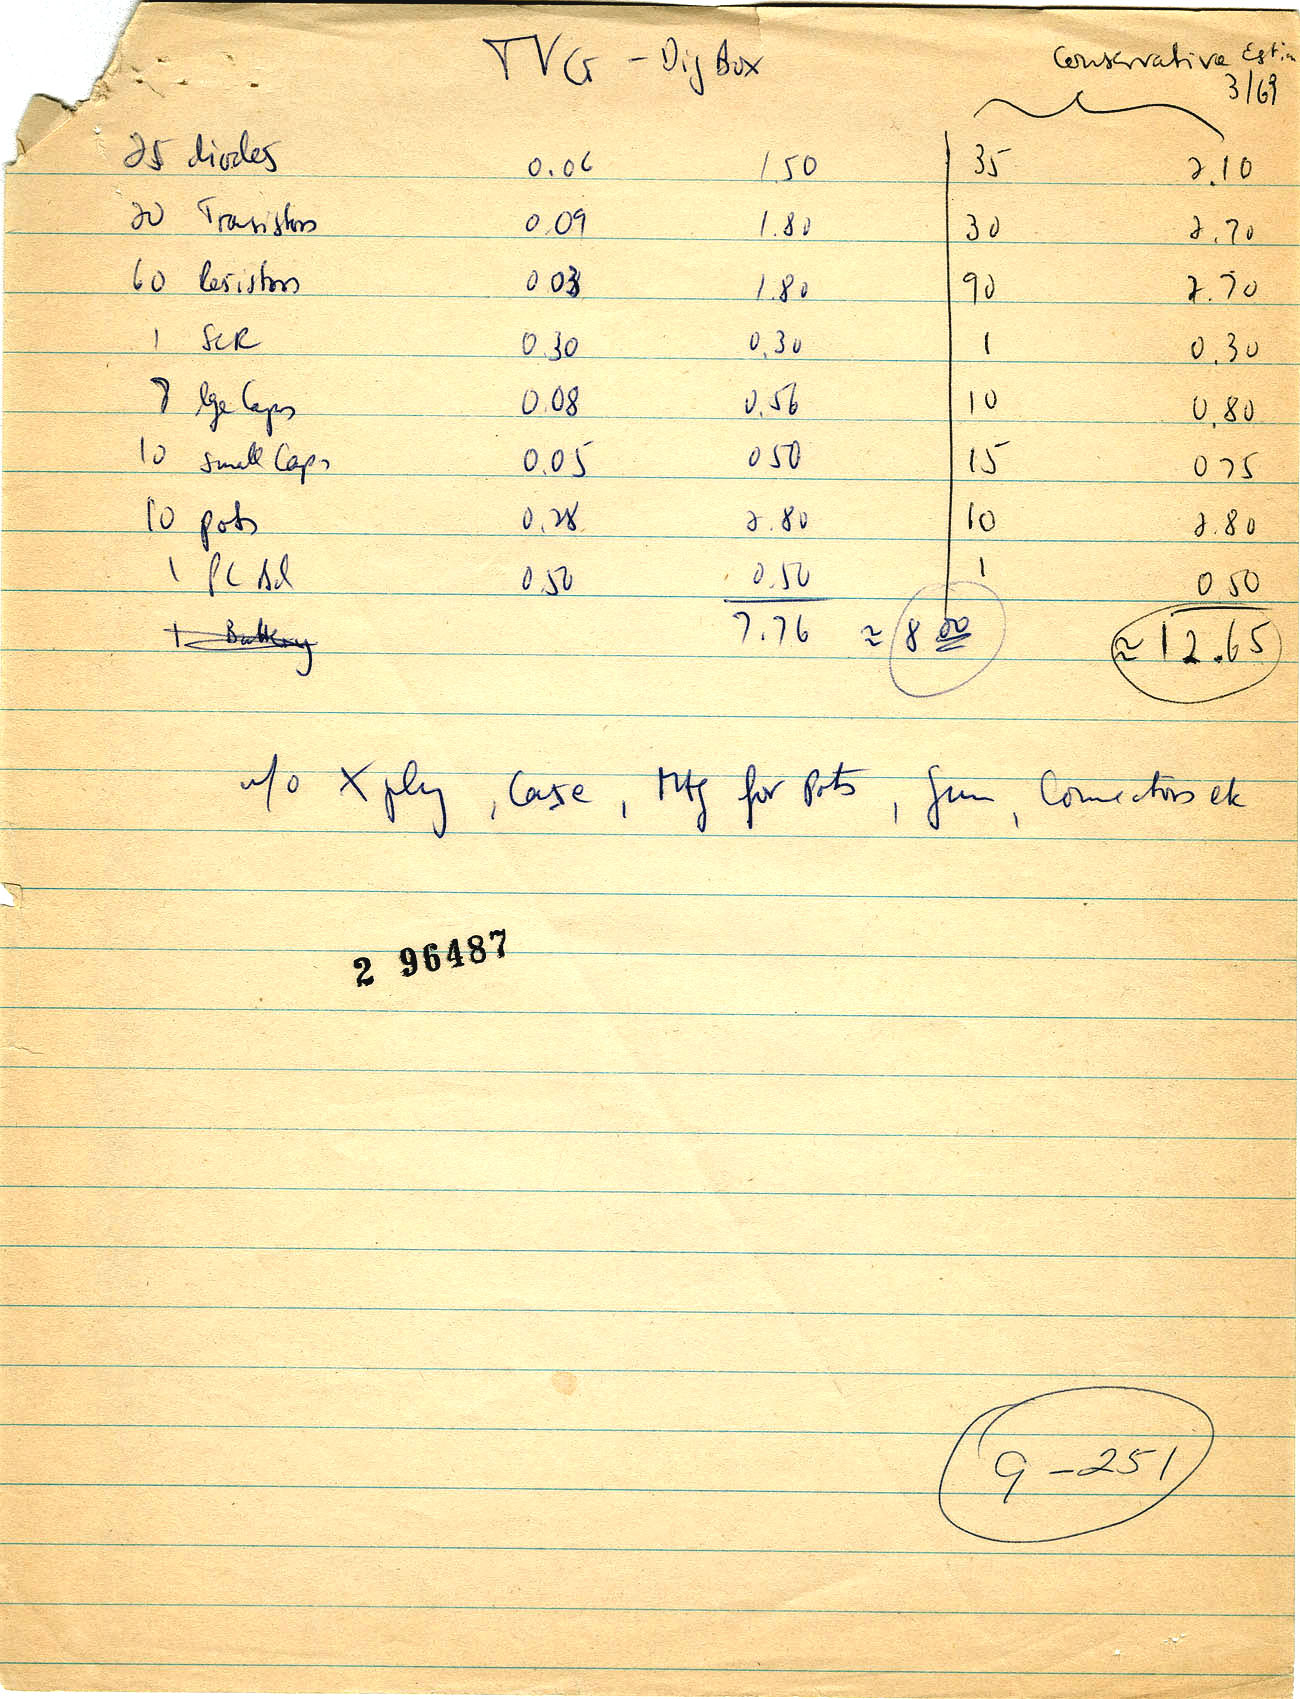 TVG - Dig Box
Conservative Estim
3/69
25 diodes 0.06 1.50 35 2.10
20 Transistors 0.09 1.80 30 2.70
60 Resistors 0.03 1.80 90 2.70
1 SCR 0.30 0.30 1 0.30
7 lge Caps 0.08 0.56 10 0.80
10 small Caps 0.05 0 50 15 0 75
10 pots 0.28 2.80 10 2.80
1 PC Bd 0 50 0.50 1 0 50
1 Battery 7.76 ≈ 8 00 ≈ 12.65
w/o X ply, Case, Mtg for Pots, Gun, Connectors etc
2 96487
9-251